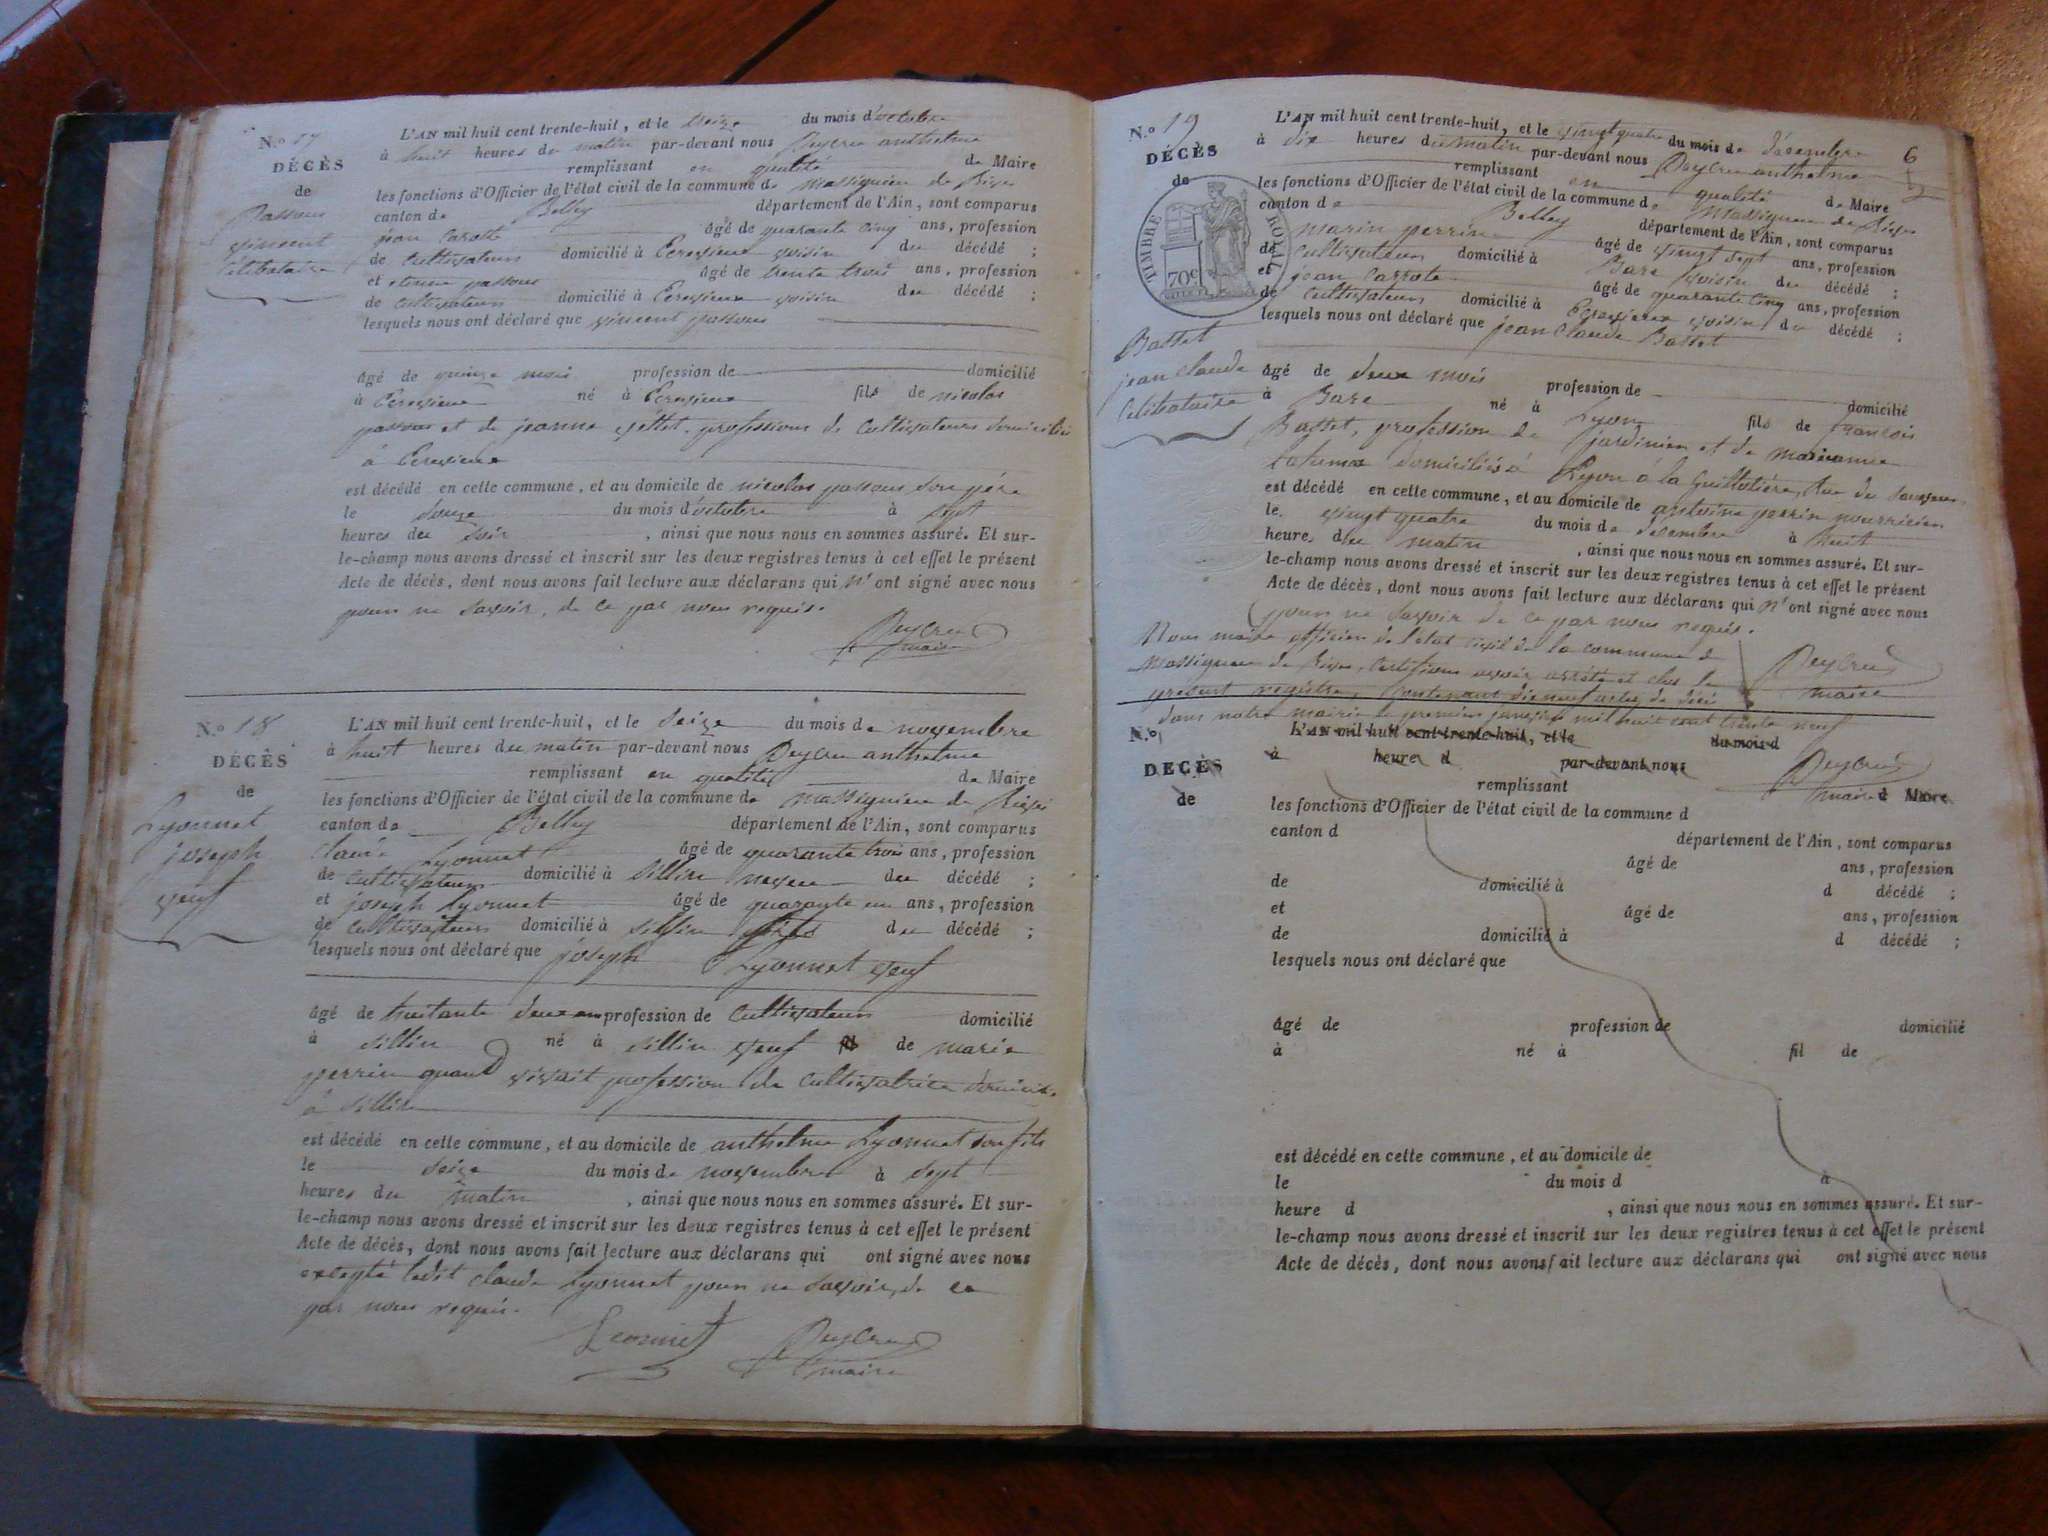 N.o 17
DÉCÈS
de
Passous
vincent
Célibataire
L'AN mil huit cent trente-huit, et le seize du mois d'octobre
à huit heures du matin par-devant nous Peycru anthelme
remplissant en qualité de Maire
les fonctions d'Officier de l'état civil de la commune de massignieu de Rives
canton de Belley département de l'Ain, sont comparus
jean Carotte âgé de quarante cinq ans, profession
de cultivateur domicilié à Ecrevieux voisin du décédé ;
et etienne passous âgé de trente trois ans, profession
de cultivateur domicilié à Ecrevieux voisin du décédé ;
lesquels nous ont déclaré que vincent passous
âgé de quinze mois profession de domicilié
à Ecrevieux né à Ecrevieux fils de nicolas
passous et de jeanne professions de Cultivateurs domiciliés
à Ecrevieux
est décédé en cette commune, et au domicile de nicolas passous son père
le douze du mois d'octobre à sept
heures du soir , ainsi que nous nous en sommes assuré. Et sur-
le-champ nous avons dressé et inscrit sur les deux registres tenus à cet effet le présent
Acte de décès, dont nous avons fait lecture aux déclarans qui n' ont signé avec nous
pour ne savoir, de ce par nous requis.
Peycru
maire
N.o 18
DÉCÈS
de
Lyonnet
joseph
veuf
L'AN mil huit cent trente-huit, et le seize du mois de novembre
à huit heures du matin par-devant nous Peycru anthelme
remplissant en qualité de Maire
les fonctions d'Officier de l'état civil de la commune de massignieu de Rives
canton de Belley département de l'Ain, sont comparus
Lyonnet âgé de quarante trois ans, profession
de cultivateur domicilié à Sillin neveu du décédé ;
et joseph Lyonnet âgé de quarante un ans, profession
de cultivateur domicilié à Sillin fils du décédé ;
lesquels nous ont déclaré que joseph Lyonnet veuf
âgé de huitante deux ans profession de Cultivateur domicilié
à Sillin né à Sillin veuf de marie
perrin quand vivait profession de Cultivatrice domicil.
à Sillin
est décédé en cette commune, et au domicile de anthelme Lyonnet son fils
le seize du mois de novembre à sept
heures du matin , ainsi que nous nous en sommes assuré. Et sur-
le-champ nous avons dressé et inscrit sur les deux registres tenus à cet effet le présent
Acte de décès, dont nous avons fait lecture aux déclarans qui ont signé avec nous
excepté ledit claude Lyonnet pour ne savoir, de ce
par nous requis.
Leonnet Peycru
maire
6
N.o 19
DÉCÈS
de
TIMBRE ROYAL
70c
Basset
jean Claude
Célibataire
L'AN mil huit cent trente-huit, et le vingt quatre du mois de décembre
à dix heures du matin par-devant nous Peycru anthelme
remplissant en qualité de Maire
les fonctions d'Officier de l'état civil de la commune de Massignieu de Rives
canton de Belley département de l'Ain, sont comparus
marin perrin âgé de vingt sept ans, profession
de Cultivateur domicilié à Bare voisin du décédé ;
et jean Carrote âgé de quarante cinq ans, profession
de cultivateur domicilié à Ecrevieux voisin du décédé ;
lesquels nous ont déclaré que jean Claude Basset
âgé de deux mois profession de domicilié
à Bare né à Lyon fils de françois
Basset, profession de jardinier et de marianne
domiciliés à Lyon à la Guillotière, Rue de
est décédé en cette commune, et au domicile de antoine perrin nourricier
le vingt quatre du mois de décembre à huit
heure du matin , ainsi que nous nous en sommes assuré. Et sur-
le-champ nous avons dressé et inscrit sur les deux registres tenus à cet effet le présent
Acte de décès, dont nous avons fait lecture aux déclarans qui n' ont signé avec nous
pour ne savoir de ce par nous requis.
Nous maire officier de l'état civil de la commune de
Massignieu de Rives, Certifions avoir arrêté et clos le
présent registre, contenant dix neuf actes de décès
dans notre mairie le premier janvier mil huit cent trente neuf
Peycru
maire
Peycru
maire
N.o
DÉCÈS
de
L'AN mil huit cent trente-huit, et le du mois d
à heure d par-devant nous
remplissant d Maire
les fonctions d'Officier de l'état civil de la commune d
canton d département de l'Ain, sont comparus
âgé de ans, profession
de domicilié à d décédé ;
et âgé de ans, profession
de domicilié à d décédé ;
lesquels nous ont déclaré que
âgé de profession de domicilié
à né à fil de
est décédé en cette commune, et au domicile de
le du mois d à
heure d , ainsi que nous nous en sommes assuré. Et sur-
le-champ nous avons dressé et inscrit sur les deux registres tenus à cet effet le présent
Acte de décès, dont nous avons fait lecture aux déclarans qui ont signé avec nous